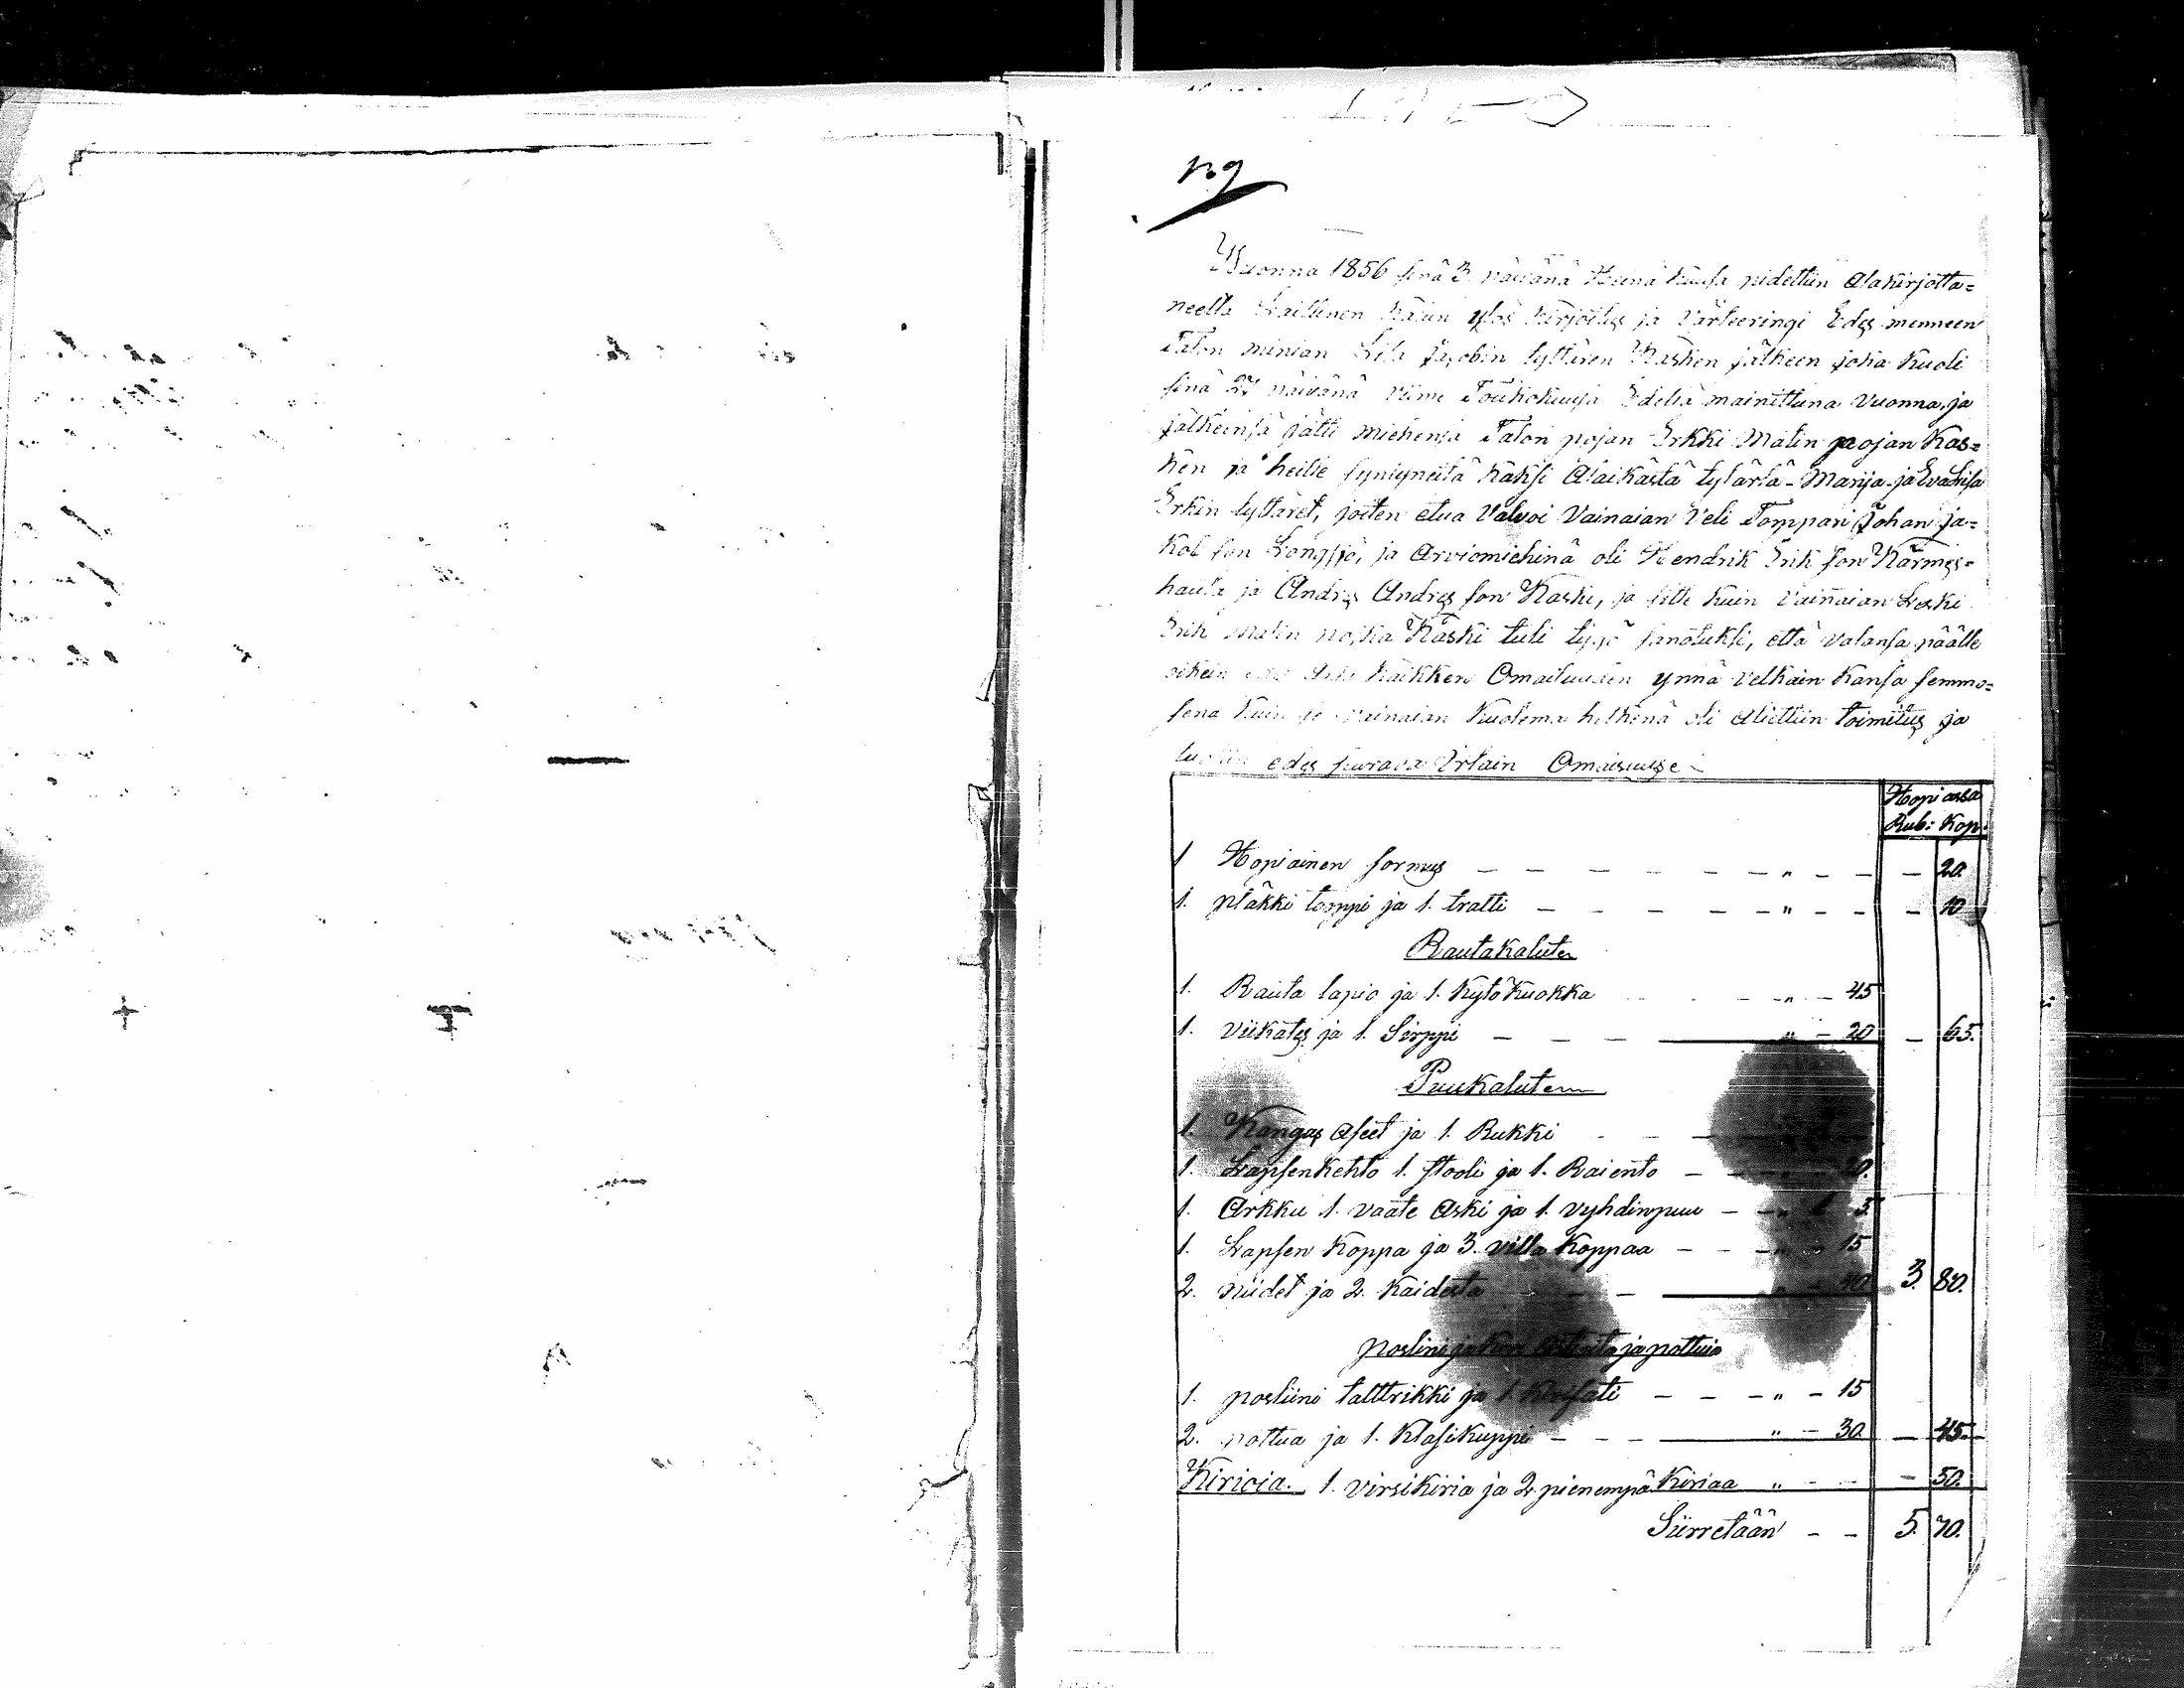 n:9
Wuonna 1856 sinä 3 päivänä Heinä kuusa pidettiin Alakirjotta=
neelta Laillinen Kalun ylös kirjoitus ja Värteeringi Edes menneen
Talon minian Lisa Jacobin tyttären Kasken jälkeen joka Kuoli
sinä 27 päivänä viime Toukokuusa Edellä mainittuna vuonna, ja
jälkeensä jätti miehensä Talon pojan Erkki Matin pojan Kas=
ken ja heille syntyneitä kaksi Alaikästä tytärtä - Marija ja Eva Lisa
Erkin tyttäret, joiten etua Valvoi Vainaian Veli Torppari Johan Ja=
kob son Långsjö, ja Arviomiehinä oli Hendrik Erik son Kärmes=
hauta ja Andres Andres son Kaski, ja sitte kuin Vainaian Leski
Erik Matin poika Kaski tuli tygö sanotuksi, että valansa päälle
oikein kaikken Omaisuuden ynnä velkain Kansa semmo=
sena Kuin se vainaian Kuolema hetkenä oli Alettiin toimitus ja
edes seurava Irtain Omaisuus
Hopiassa
Rub: Kop:
1 Hopiainen sormus — — — — — — " — — — 20.
1. pläkki toppi ja 1. tratti — — — — — " — — — 10
Rautakaluten
1. Rauta lapio ja 1. Kytö Kuokka — " — 45
1. viikates ja 1. Sirppi — — — " — 20 — 65.
Puukaluten
1. Kangas Aseet ja 1. Rukki — — —
1. Lapsenkehto 1. stooli ja 1. Raiento — —
1. Arkku 1. vaate Aski ja 1. vyhdinpuu — — "
1. Lapsen Koppa ja 3. villa Koppaa — — — 15
2. niidet ja 2. Kaidesta — — — " — 40 3. 80.
poslini ja ja pottuia
1. posliini talttrikki ja 1. — — — " — 15
2. pottua ja 1. Klasikuppi — — — " — 30. — 45.
Kirioia. 1. virsikiria ja 2. pienempä Kiriaa " — — — 50.
Siirretään — — 5. 70.